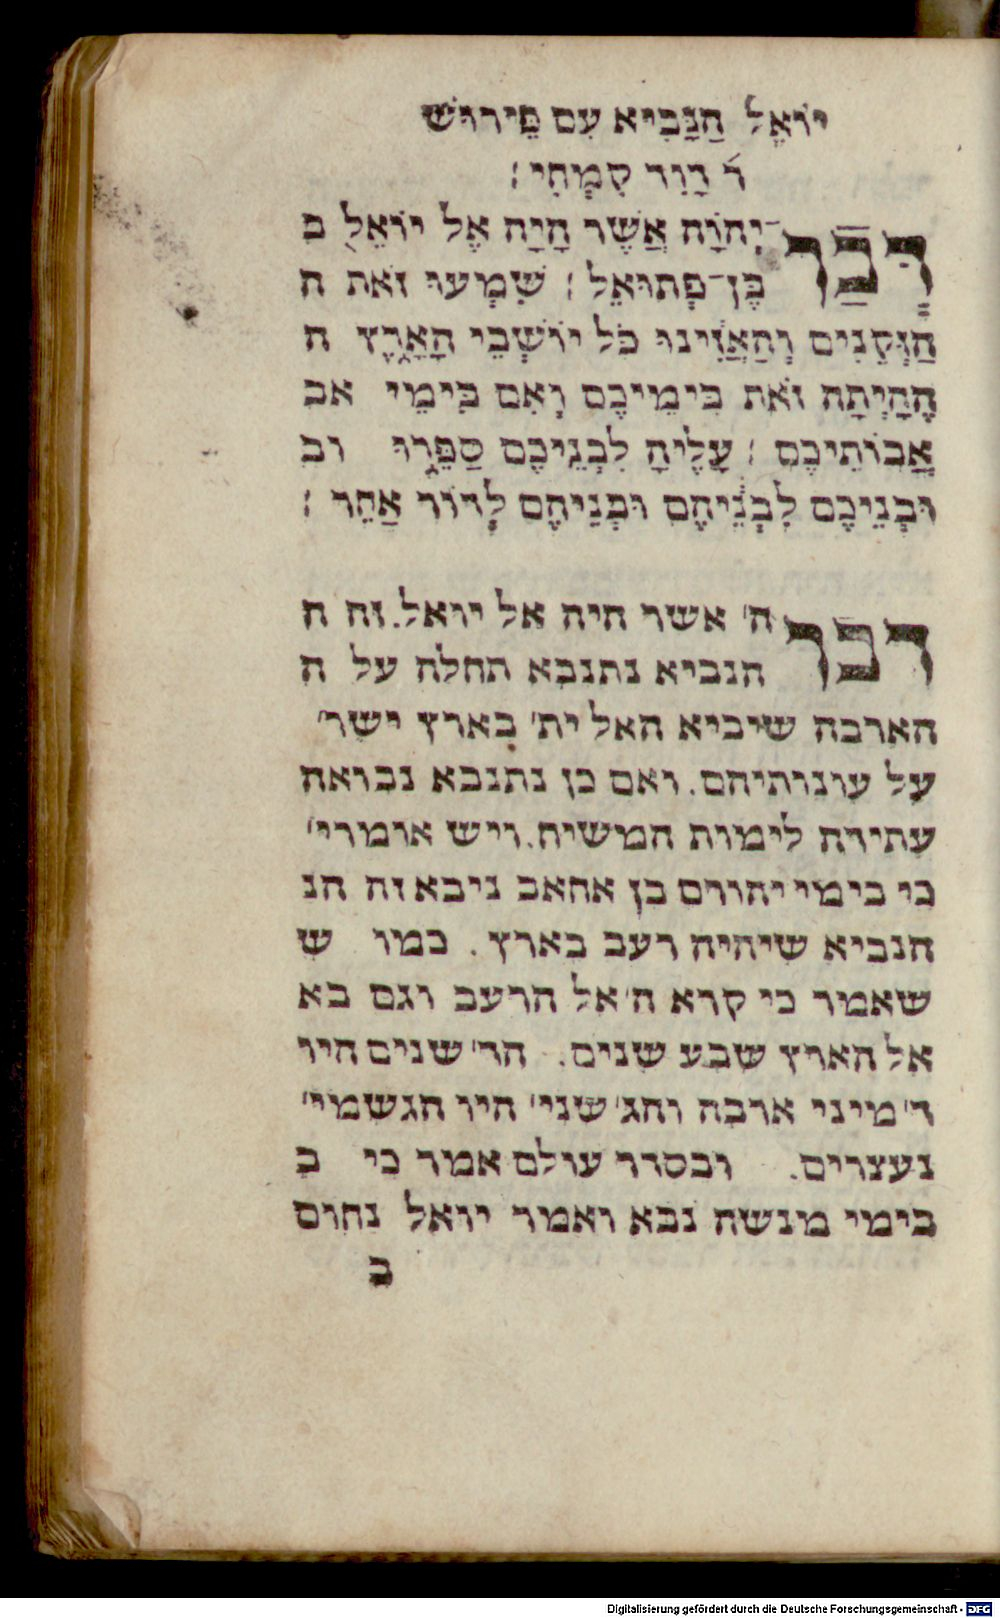 יוֹאֵל הַנָּבִיא עִם פֵּירוּשׁ
ר׳ דָוִד קִמְחִי׃
דְּבַר־יְהוָֹה אֲשֶׁר הָיָה אֶל יוֹאֵל ב
בֶּן־פְּתוּאֵל׃ שִׁמְעוּ זֹאת ה
הַזְּקֵנִים וְהַאֲזִינוּ כֹּל יוֹשְׁבֵי הָאָרֶץ ה
הֶהָיְתָה זֹּאת בִּימֵיכֶם וְאִם בִּימֵי אב
אֲבוֹתֵיכֶם׃ עָלֶיהָ לִבְנֵיכֶם סַפֵּרוּ וב
וּבְנֵיכֶם לִבְנֵיהֶם וּבְנֵיהֶם לְדוֹר אַחֵר׃
דבר ה׳ אשר היה אל יואל. זה ה
הנביא נתנבא תחלה על ה
הארבה שיביא האל ית׳ בארץ ישר׳
על עונותיהם. ואם כן נתנבא נבואה
עתידה לימות המשיח. ויש אומרי׳
כי בימי יהורם בן אחאב ניבא זה הנ
הנביא שיהיה רעב בארץ. כמו ש
שאמר כי קרא ה׳ אל הרעב וגם בא
אל הארץ שבע שנים. הד׳ שנים היו
ד׳ מיני ארבה והג׳ שני׳ היו הגשמי׳
נעצרים. ובסדר עולם אמר כי ב
בימי מנשה נבא ואמר יואל נחום
ב
Digitalisierung gefördert durch die Deutsche Forschungsgemeinschaft - DFG